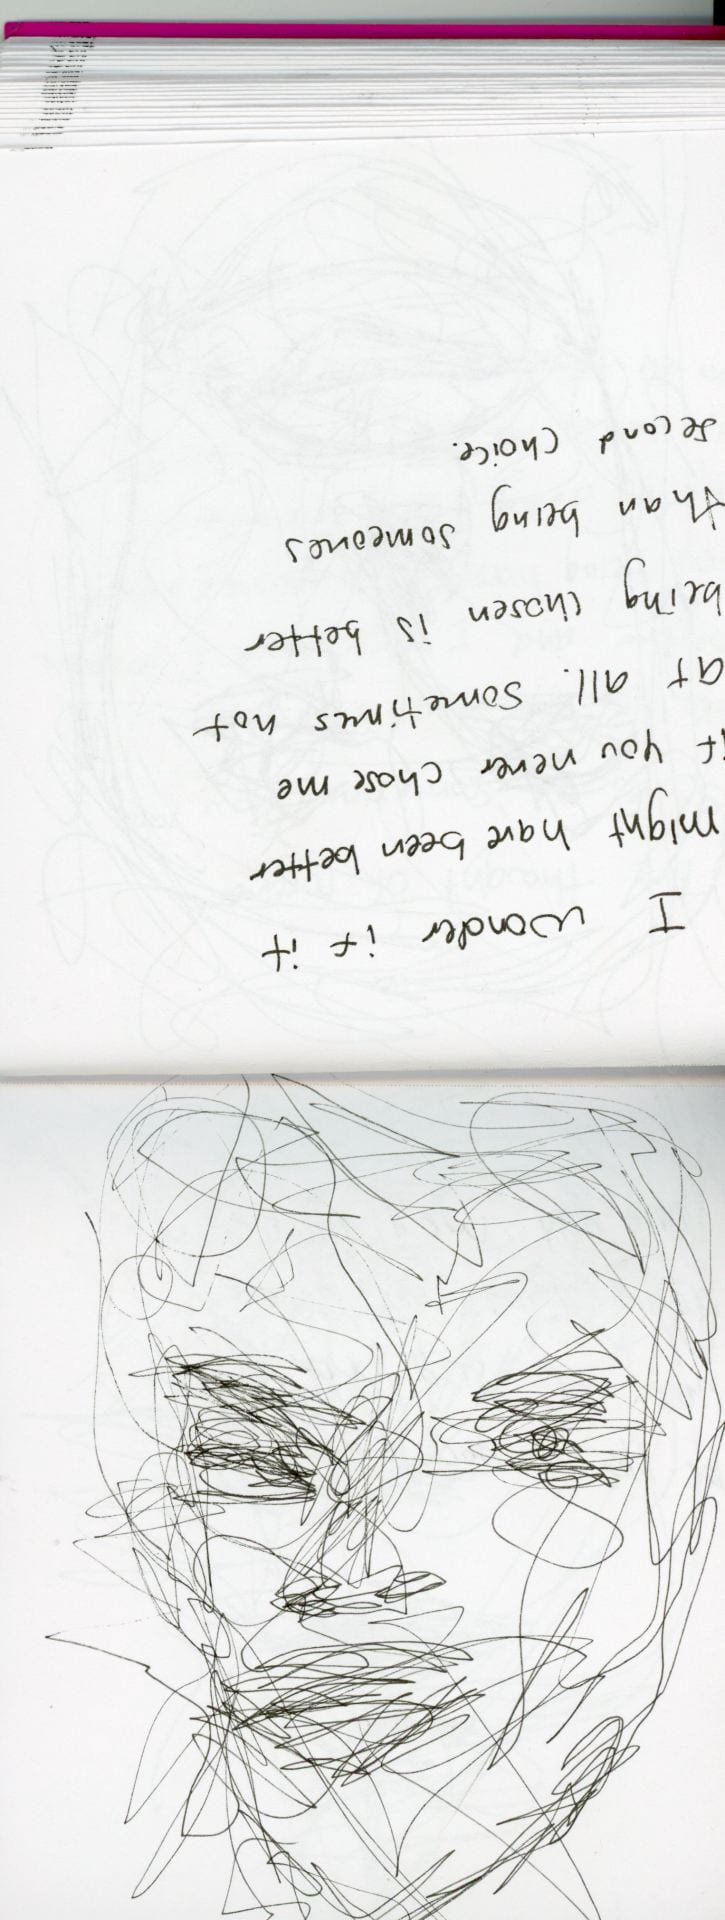 I wonder if it
might have been better
if you never chose me
at all. Sometimes not
being chosen is better
than being someones
second choice.